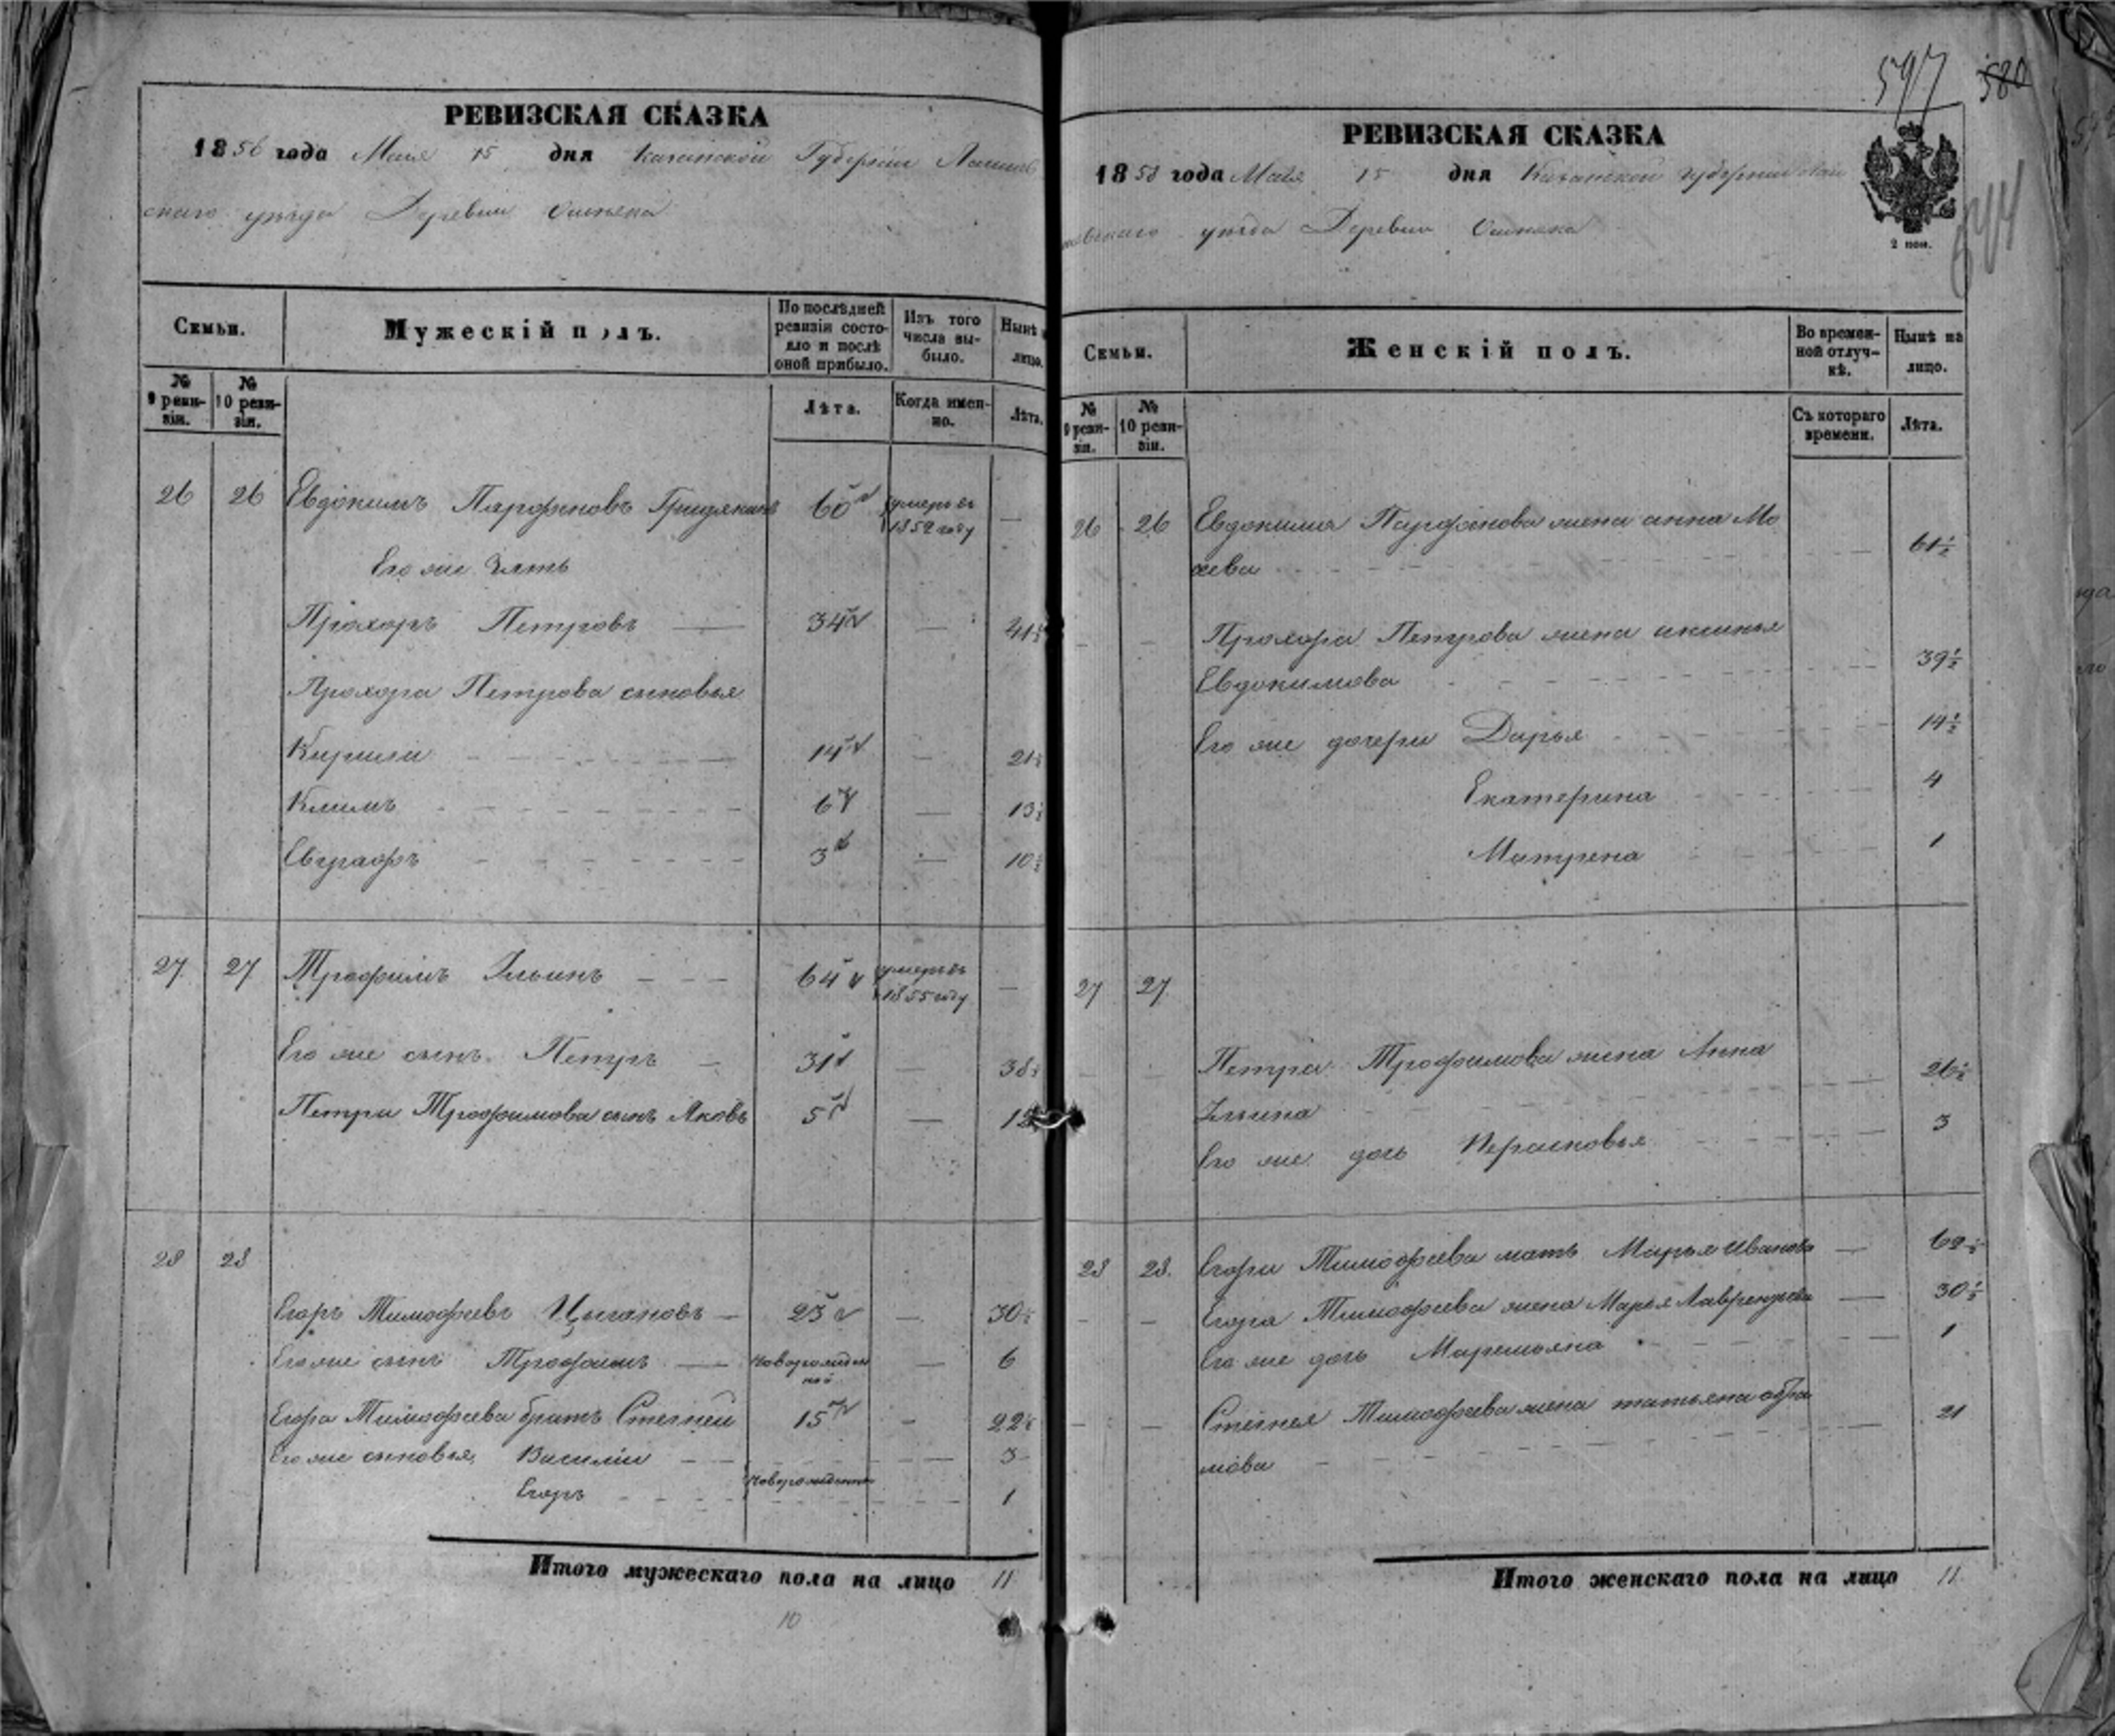 РЕВИЗСКАЯ СКАЗКА
1856 года Маія 15 дня Казанской Губерніи Лаишев
скаго уѣзда Деревни Ошняка
Семьи.
Мужескій полъ.
По послѣдней ревизіи состояло и послѣ оной прибыло.
Изъ того числа выбыло.
Нынѣ на лицо.
№ 9 ревизіи.
№ 10 ревизіи.
Лѣта.
Когда именно.
Лѣта.
26 26 Евдокимъ Парфеновъ 60 умеръ въ 1852 году —
Его же Зять
Прохоръ Петровъ — 34 — 41½
Прохора Петрова сыновья
Кирила 14 — 21½
Климъ 6 — 13½
Евграфъ 3 — 10½
27 27 Трофимъ Ильинъ 64 умеръ въ 1855 году —
Его же сынъ Петръ 31 — 38½
Петра Трофимова сынъ Яковъ 5 — 12
28 28
Егоръ Тимофѣевъ Цыгановъ — 23 — 30½
Его же сынъ Трофимъ — новорожденной — 6
Егора Тимофѣева братъ Стегней 15 — 22½
Его же сыновья Василіи — 3
Егоръ новорожденны 1
Итого мужескаго пола на лицо 11
10
597 580
РЕВИЗСКАЯ СКАЗКА
1858 года Маія 15 дня Казанской губерніи Лаи
шевскаго уѣзда Деревни Ошняка
2 коп.
644
Семьи.
Женскій полъ.
Во временной отлучкѣ.
Нынѣ на лицо.
№ 9 ревизіи.
№ 10 ревизіи.
Съ котораго времени.
Лѣта.
26 26 Евдокима Парфенова жена анна Мо
сева 61½
Прохора Петрова жена аксинья
Евдокимова 39½
Его же дочери Дарья 14½
Екатерина 4
Матрена 1
27 27
Петра Трофимова жена Анна
Ильина 26½
Его же дочь Персковья 3
28 28. Егора Тимофѣева мать Марья Иванова — 62½
Егора Тимофѣева жена Марья Лаврентьева — 30½
Его же дочь Маремьяна 1
Стегнея Тимофѣева жена татьяна абра
мова 21
Итого женскаго пола на лицо 11